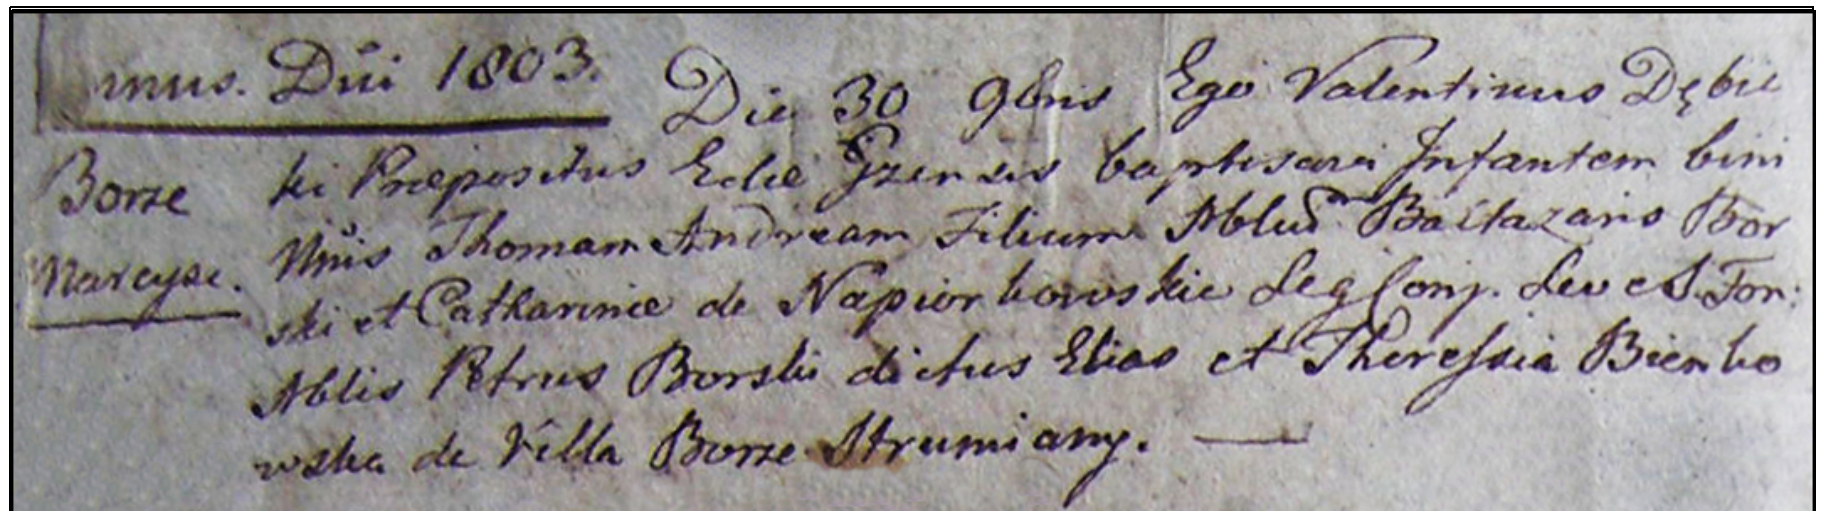 nnus. Dñi 1803. Die 30 9bris Ego Valentinus Dębic
Borze ki Præpositus Eclie Gzensis baptisavi Infantem bini
Nñis Thomam Andream Filium Nblium Baltazaris Bor
Narcyze. ski et Catharinæ de Napiorkowskie Leg Conj. Lev e S. Fon:
Nblis Petrus Borski dictus Elias et Theressia Bienko
wska de Villa Borze Strumiany.